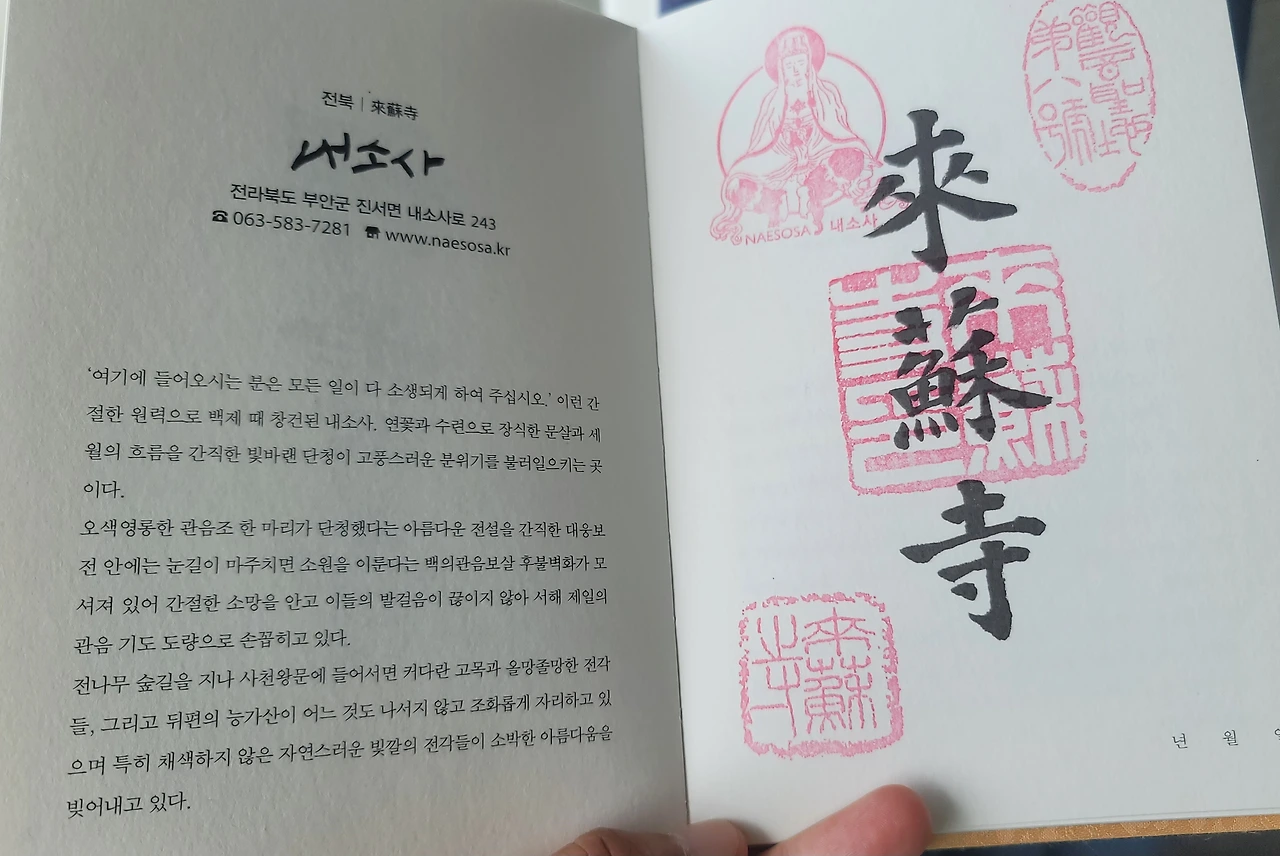 전북 | 來蘇寺
내소사
전라북도 부안군 진서면 내소사로 243
☎ 063-583-7281 www.naesosa.kr
‘여기에 들어오시는 분은 모든 일이 다 소생되게 하여 주십시오.’ 이런 간
절한 원력으로 백제 때 창건된 내소사. 연꽃과 수련으로 장식한 문살과 세
월의 흐름을 간직한 빛바랜 단청이 고풍스러운 분위기를 불러일으키는 곳
이다.
오색영롱한 관음조 한 마리가 단청했다는 아름다운 전설을 간직한 대웅보
전 안에는 눈길이 마주치면 소원을 이룬다는 백의관음보살 후불벽화가 모
셔져 있어 간절한 소망을 안고 이들의 발걸음이 끊이지 않아 서해 제일의
관음 기도 도량으로 손꼽히고 있다.
전나무 숲길을 지나 사천왕문에 들어서면 커다란 고목과 올망졸망한 전각
들, 그리고 뒤편의 능가산이 어느 것도 나서지 않고 조화롭게 자리하고 있
으며 특히 채색하지 않은 자연스러운 빛깔의 전각들이 소박한 아름다움을
빚어내고 있다.
觀音聖地
第六號
NAESOSA 내소사
來
蘇
寺
來蘇
寺
년 월